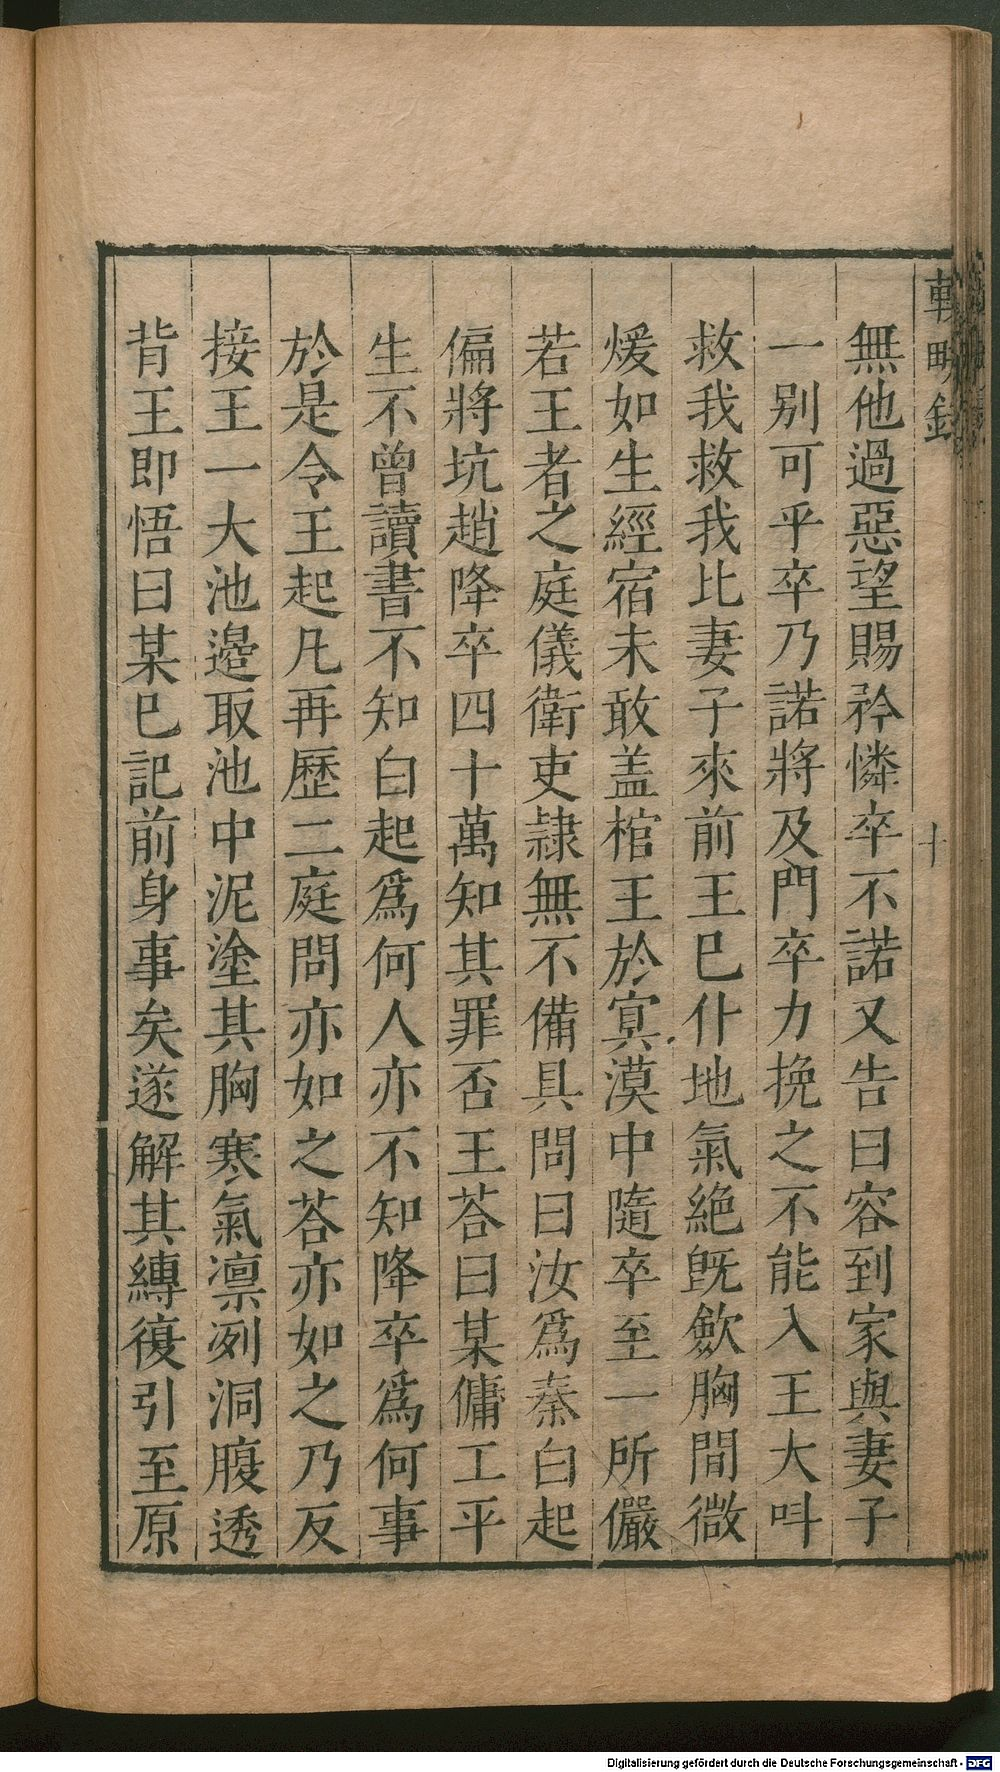 無他過惡望賜矜憐卒不諾又告曰容到家與妻子
一别可乎卒乃諾將及門卒力挽之不能入王大呌
救我救我比妻子來前王巳仆地氣絶旣歛胸間微
煖如生經宿未敢盖棺王於冥漠中隨卒至一所儼
若王者之庭儀衛吏隷無不備具問曰汝爲秦白起
偏將坑趙降卒四十萬知其罪否王荅曰某傭工平
生不曾讀書不知白起爲何人亦不知降卒爲何事
於是令王起凡再歷二庭問亦如之荅亦如之乃反
接王一大池邉取池中泥塗其胸寒氣凛冽洞腹透
背王即悟曰某巳記前身事矣遂解其縛復引至原
十
Digitalisierung gefördert durch die Deutsche Forschungsgemeinschaft - DFG